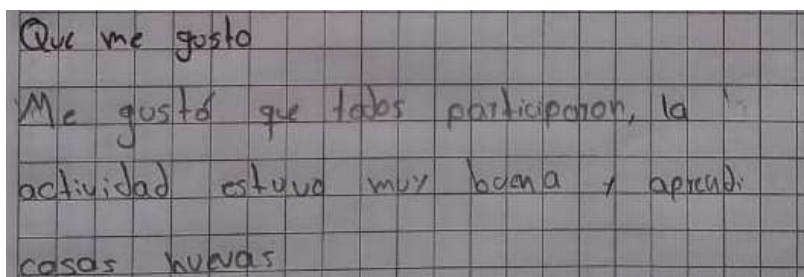 Que me gusto
Me gustó que todos participaron, la
actividad estuvo muy buena y aprendi
cosas nuevas